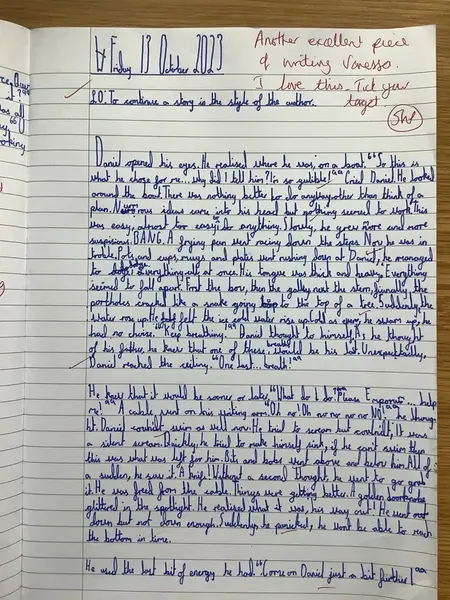 Friday 13 October 2023
Another excellent piece
of writing Vanessa.
I love this. Tick your
target
LO: To continue a story in the style of the author.
Daniel opened his eyes. He realised where he was, on a boat. "So this is
what he chose for me... why did I tell him? I'm so gulible!" Cried Daniel. He looked
around the boat. There was nothing better to do anyway other than think of a
plan. ideas came into his head but nothing seemed to work. This
was easy, almost too easy! Do anything. Slowly, he grew more and more
suspicious. BANG. A frying pan went racing down the steps. Now he was in
trouble. Pots, and cups, mugs and plates went rushing down at Daniel, he managed
to dodge everything all at once. His tongue was thick and heavy. Everything
seemed to fall apart. First the bow, then the galley, next the stern, finally the
portholes cracked like a snake going to the top of a tree. Suddenly, the
water rose up. He felt the ice cold water rise up. Cold as ever, he swam up, he
had no choice. "Keep breathing." Daniel thought to himself. As he thought
of his father, he knew that one of these breaths would be his last. Unexpectedly,
Daniel reached the ceiling. "One last... breath!"
He knew that it would be sooner or later. "What do I do? Please Emperor... help
me!" A cable went on his writing arm. "Oh no! Oh no no no no NO!" he thoug-
ht. Daniel couldn't swim as well now. He tried to scream but couldn't, it was
a silent scream. Quickly, he tried to make himself sink, if he can't swim then
this was what was left for him. Bits and bobs went above and below him. All of
a sudden, he saw it. A knife! Without a second thought, he went to go grab
it. He was freed from the cable. Things were getting better. A golden doorknob
glittered in the spotlight. He realised what it was, his way out! He went
down but not down enough. Suddenly he panicked, he wont be able to reach
the bottom in time.
He used the last bit of energy he had. "Come on Daniel just a bit further!"